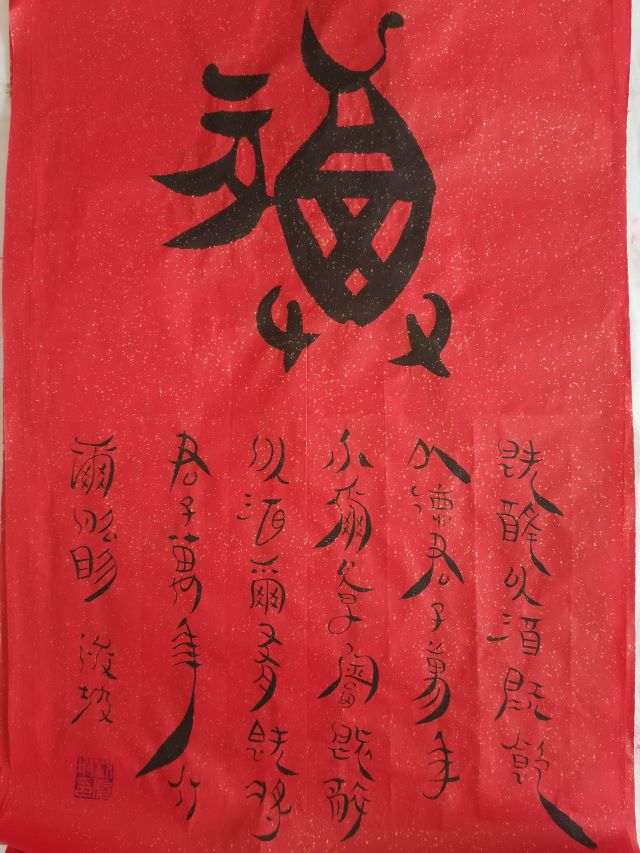 福
既醉以酒既飽
以德君子萬年
介爾景福既醉
以酒爾殽既將
君子萬年介
爾昭明 浚坡